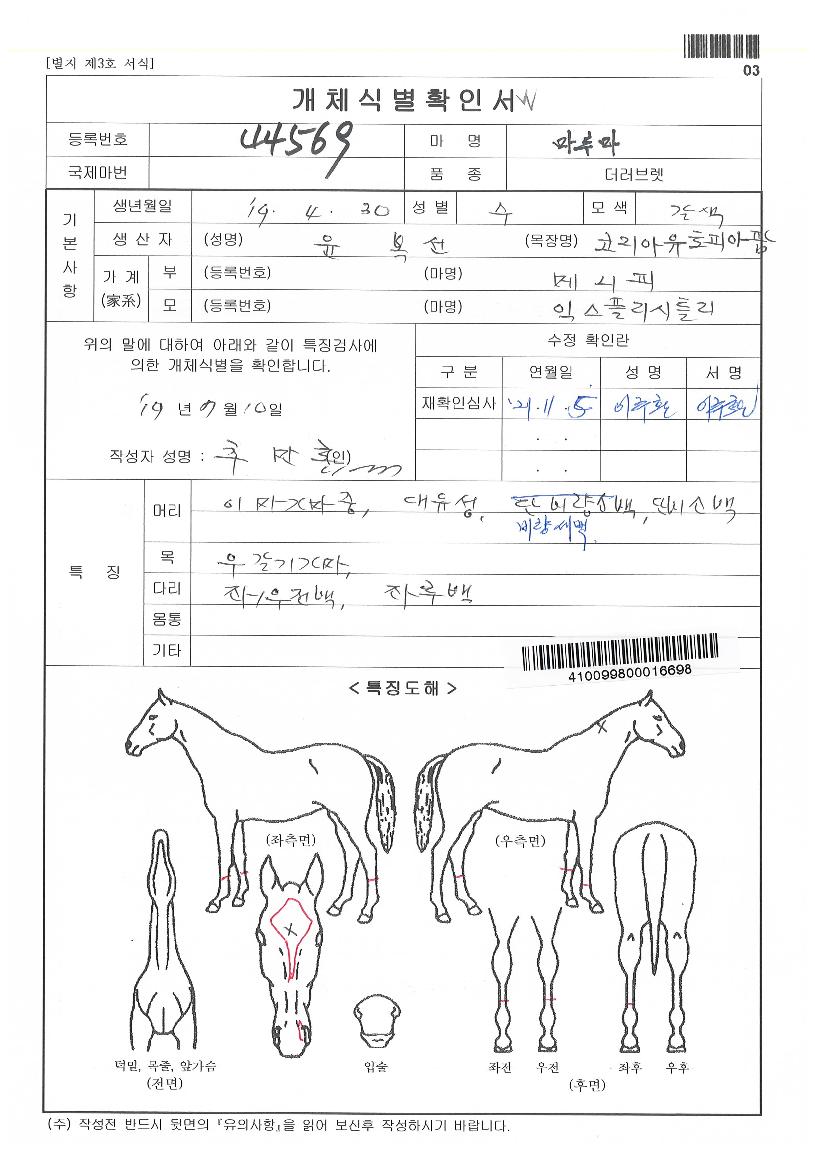 [별지 제3호 서식]
03
개체식별확인서
등록번호 44569 마 명 마루마
국제마번 품 종 더러브렛
기본사항
생년월일 '19. 4. 30 성 별 수 모 색 갈색
생 산 자 (성명) 윤 복 선 (목장명) 코리아유토피아팜
가 계 (家系) 부 (등록번호) (마명) 메 니 피
모 (등록번호) (마명) 익스플리시틀리
위의 말에 대하여 아래와 같이 특징검사에
의한 개체식별을 확인합니다.
'19 년 7 월 10 일
작성자 성명 : (인)
수정 확인란
구 분 연월일 성 명 서 명
재확인심사 '21. 11. 5
특 징
머리 이마가마중, 대유성, 비량소백, 단비소백
비량세백
목 우갈기가마,
다리 좌우전백, 좌후백
몸통
기타
410099800016698
< 특징도해 >
(좌측면) (우측면)
덕밑, 목줄, 앞가슴
(전면)
입술
좌전 우전 좌후 우후
(후면)
(수) 작성전 반드시 뒷면의 『유의사항』을 읽어 보신후 작성하시기 바랍니다.